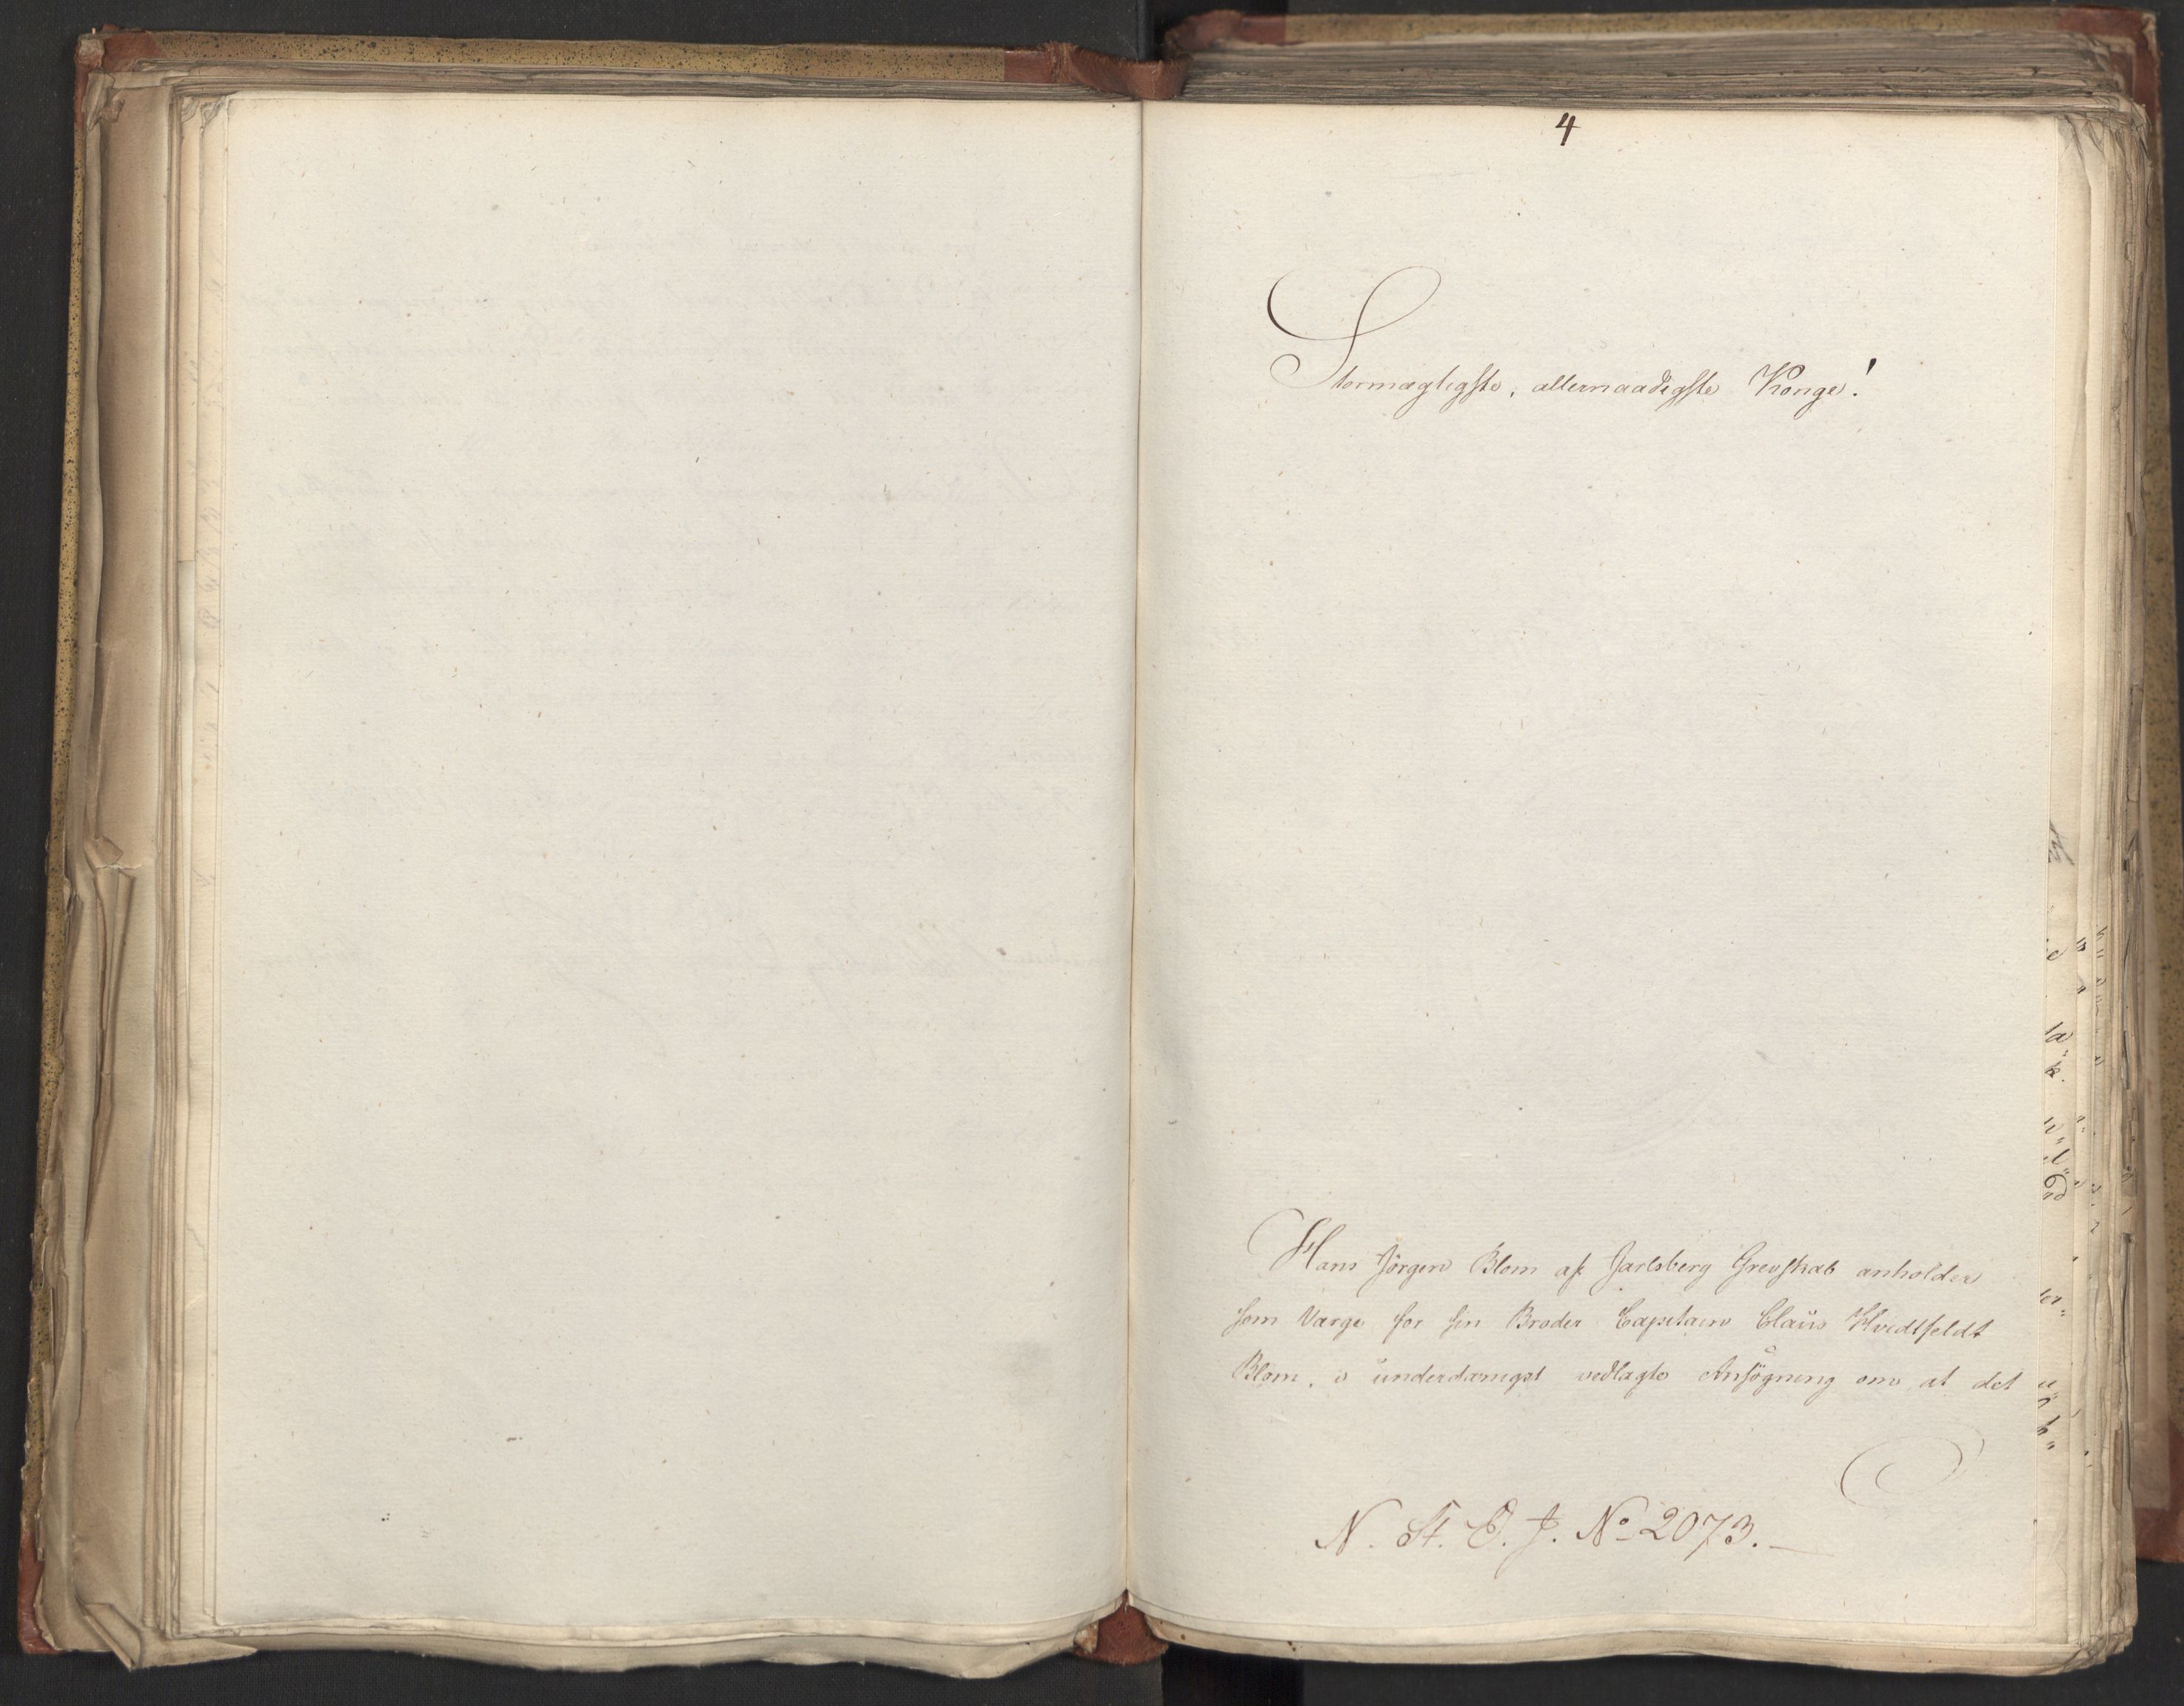 4
Stormægtigste, allernaadigste Konge!
Hans Jörgen Blom af Jarlsberg Grevskab anholder
som Værge for sin Broder Capitain Claus Hvidtfeldt
Blom, i underdanigst vedlagte Ansögning om at det
N. St. E. J. No 2073.